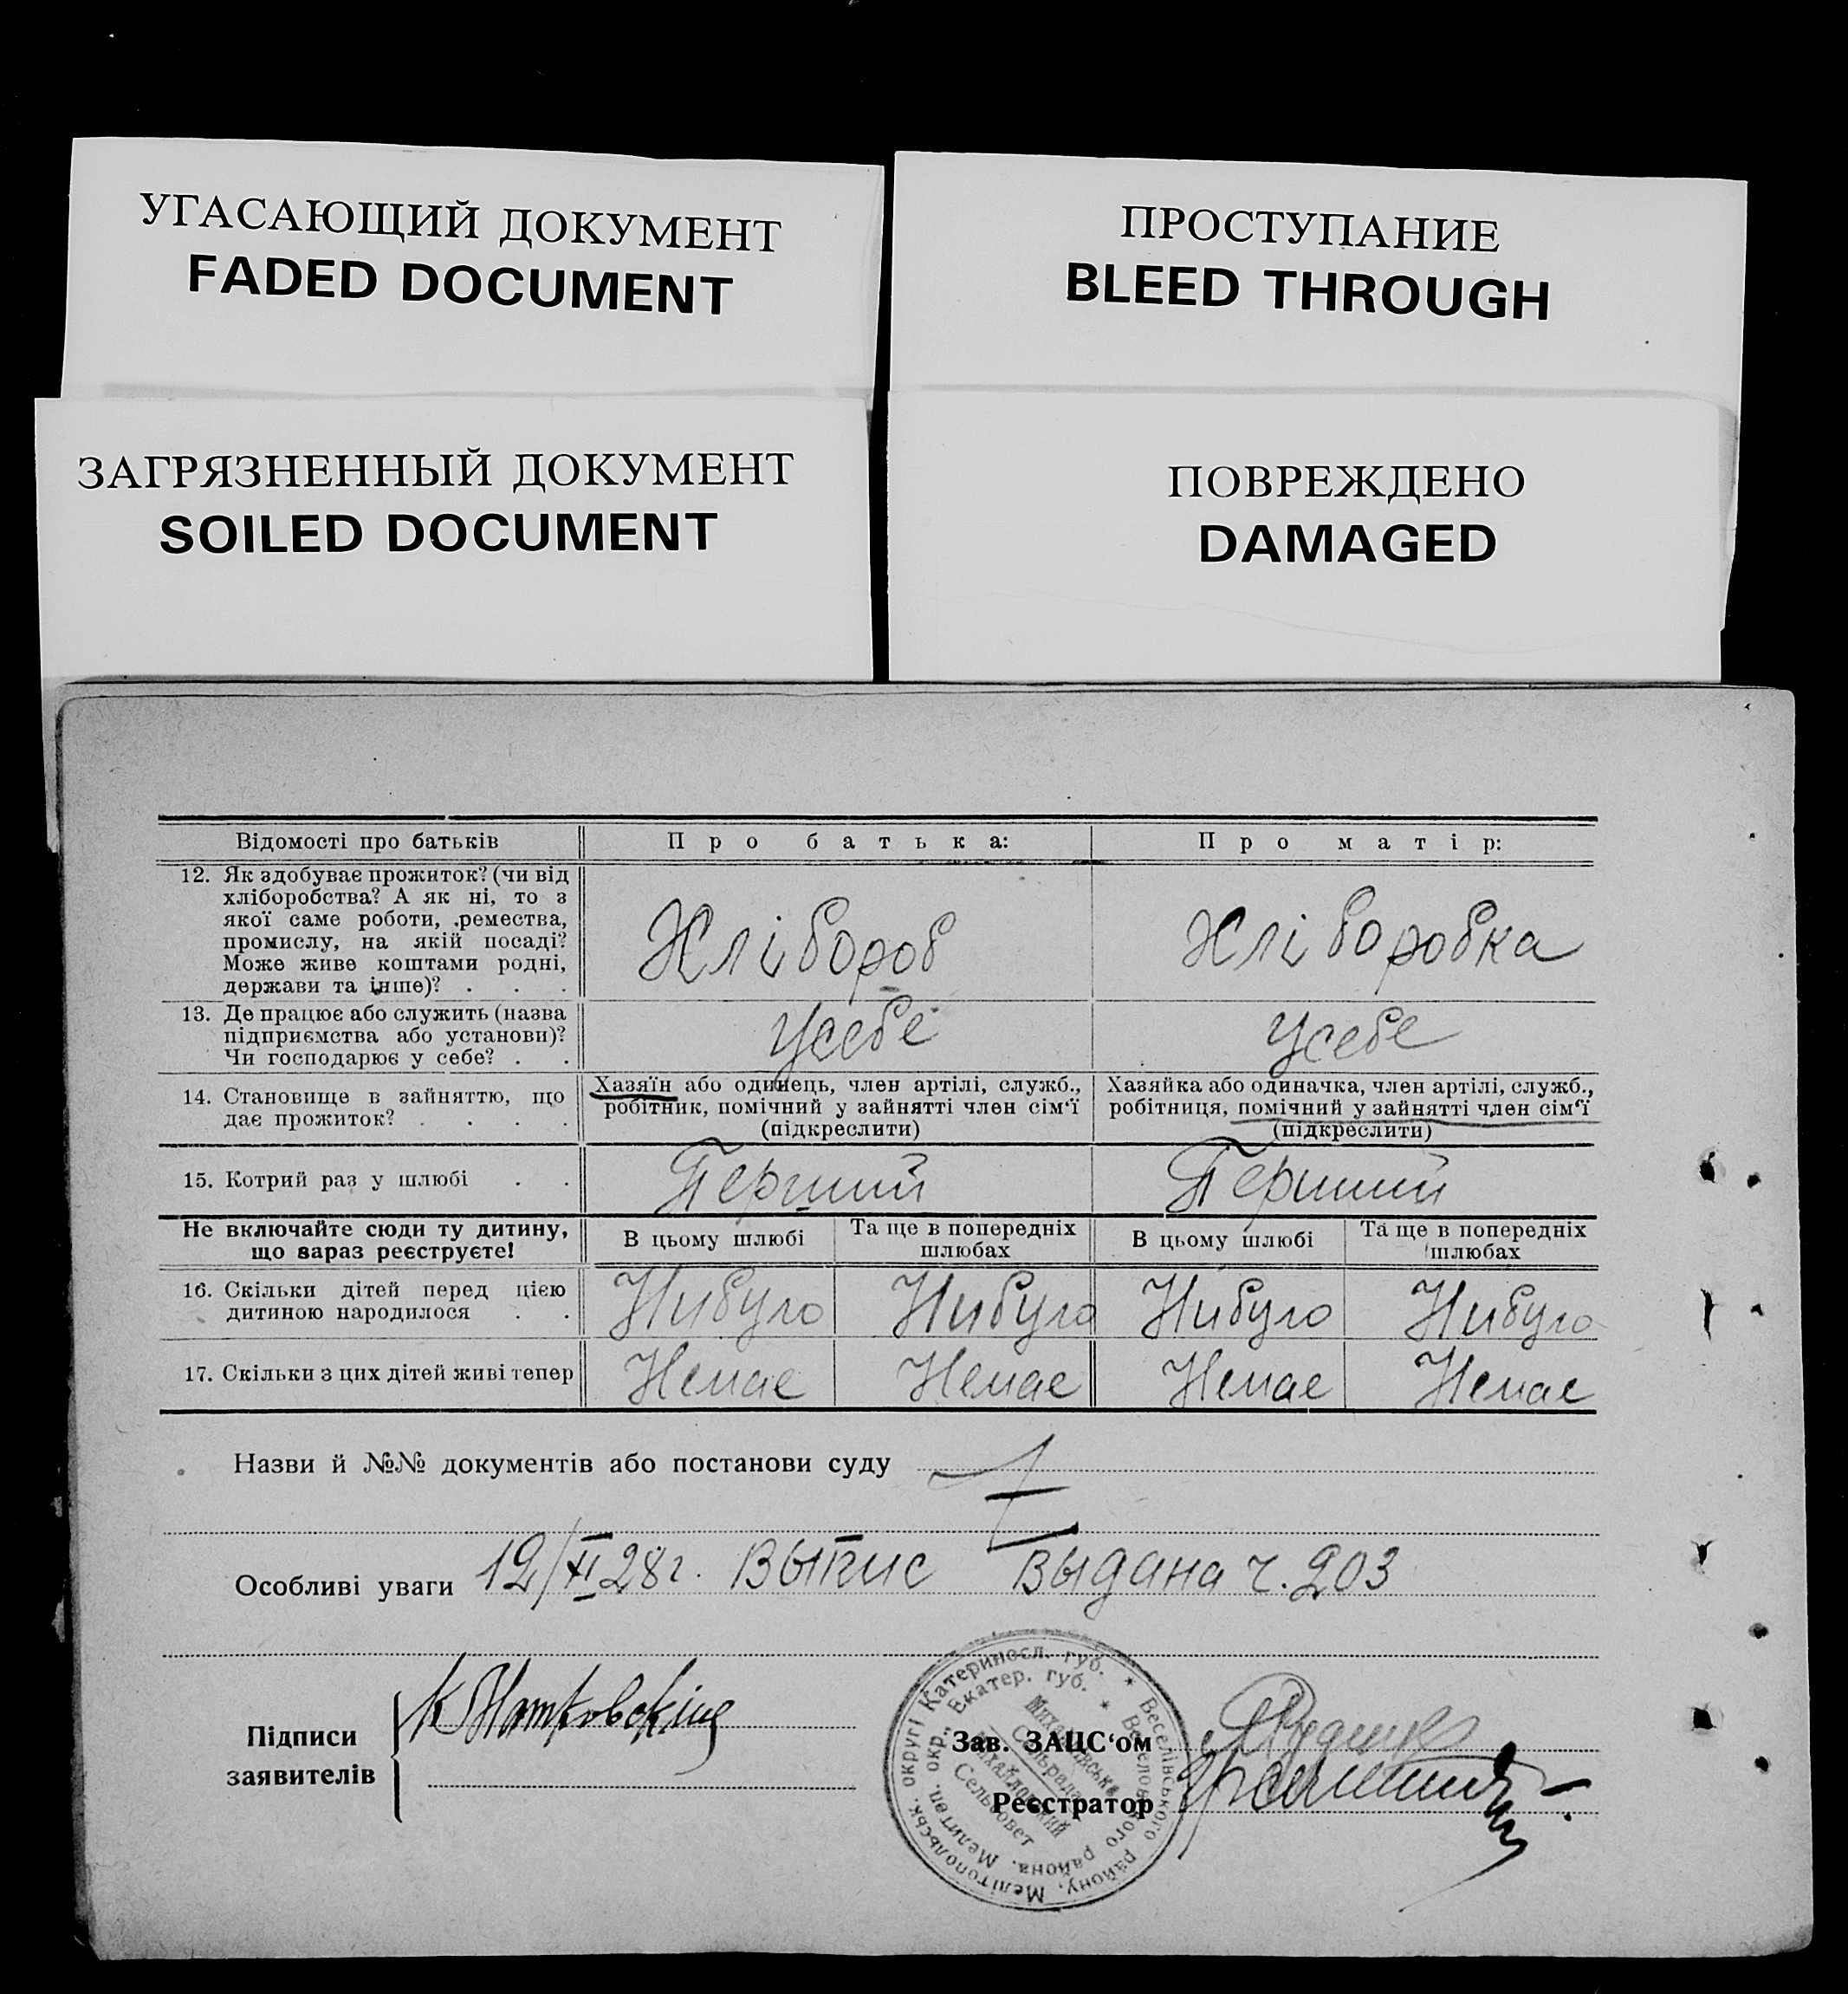 УГАСАЮЩИЙ ДОКУМЕНТ
FADED DOCUMENT
ПРОСТУПАНИЕ
BLEED THROUGH
ЗАГРЯЗНЕННЫЙ ДОКУМЕНТ
SOILED DOCUMENT
ПОВРЕЖДЕНО
DAMAGED
Відомості про батьків
Про батька:
Про матір:
12. Як здобуває прожиток? (чи від
хліборобства? А як ні, то з
якої саме роботи, ремества,
промислу, на якій посаді?
Може живе коштами родні,
держави та інше)? . . .
Хлібороб
Хліборобка
13. Де працює або служить (назва
підприємства або установи)?
Чи господарює у себе? . .
Усебе
Усебе
14. Становище в зайняттю, що
дає прожиток? . . . .
Хазяїн або одинець, член артілі, служб.,
робітник, помічний у зайнятті член сім'ї
(підкреслити)
Хазяйка або одиначка, член артілі, служб.,
робітниця, помічний у зайнятті член сім'ї
(підкреслити)
15. Котрий раз у шлюбі . .
Перший
Перший
Не включайте сюди ту дитину,
що зараз реєструєте!
В цьому шлюбі
Та ще в попередніх
шлюбах
В цьому шлюбі
Та ще в попередніх
шлюбах
16. Скільки дітей перед цією
дитиною народилося . .
Нибуло
Нибуло
Нибуло
Нибуло
17. Скільки з цих дітей живі тепер
Немає
Немає
Немає
Немає
Назви й №№ документів або постанови суду
Особливі уваги 12/XI 28г. Выпис выдана ч. 903
Підписи
заявителів
Зав. ЗАЦС'ом
Реєстратор
Мелітопольськ. округі Катериносл. губ. * Веселівського району,
Мелитоп. окр., Екатер. губ. * Веселовского района.
Михайлівська
Сельрада
Михайловский
Сельсовет